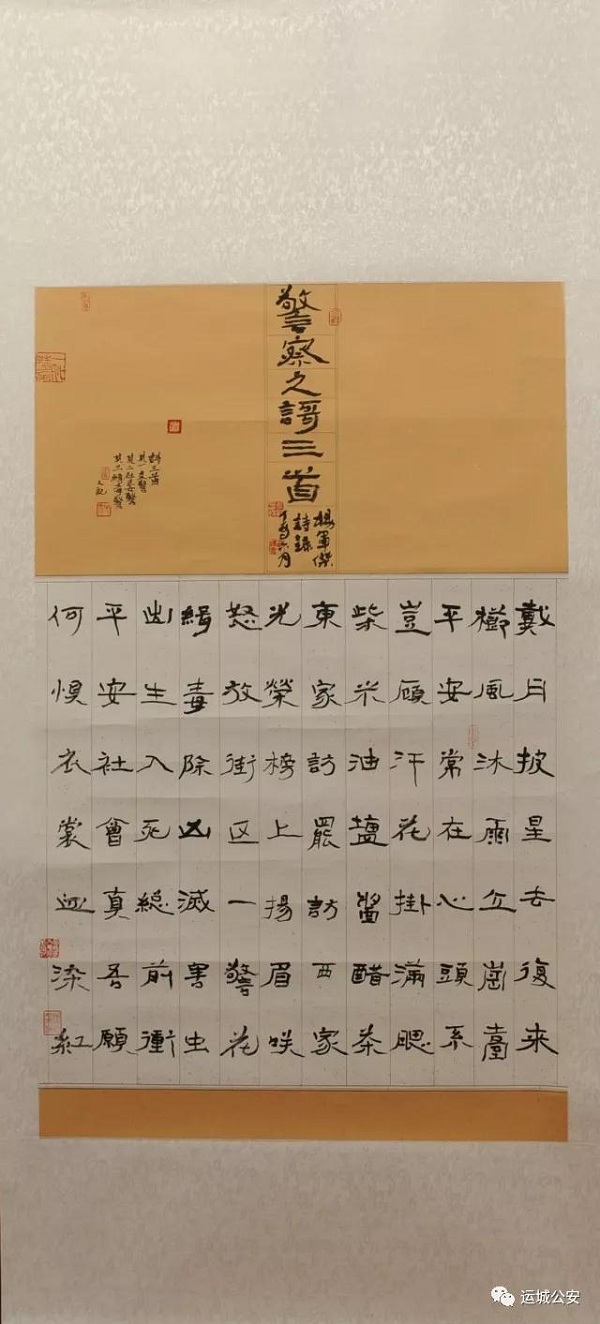 警察之謌三首
楊軍傑
詩錄
丁酉六月
詩三首
其一交警
其二社區警
其三緝毒警
戴月披星去復來
櫛風沐雨立崗臺
平安常在心頭系
豈顧汗花掛滿腮
柴米油鹽醬醋茶
東家訪罷訪西家
光榮榜上揚眉咲
怒放街区一警花
緝毒除凶滅害虫
出生入死總前衝
平安社會真吾願
何惧衣裳血染紅
运城公安